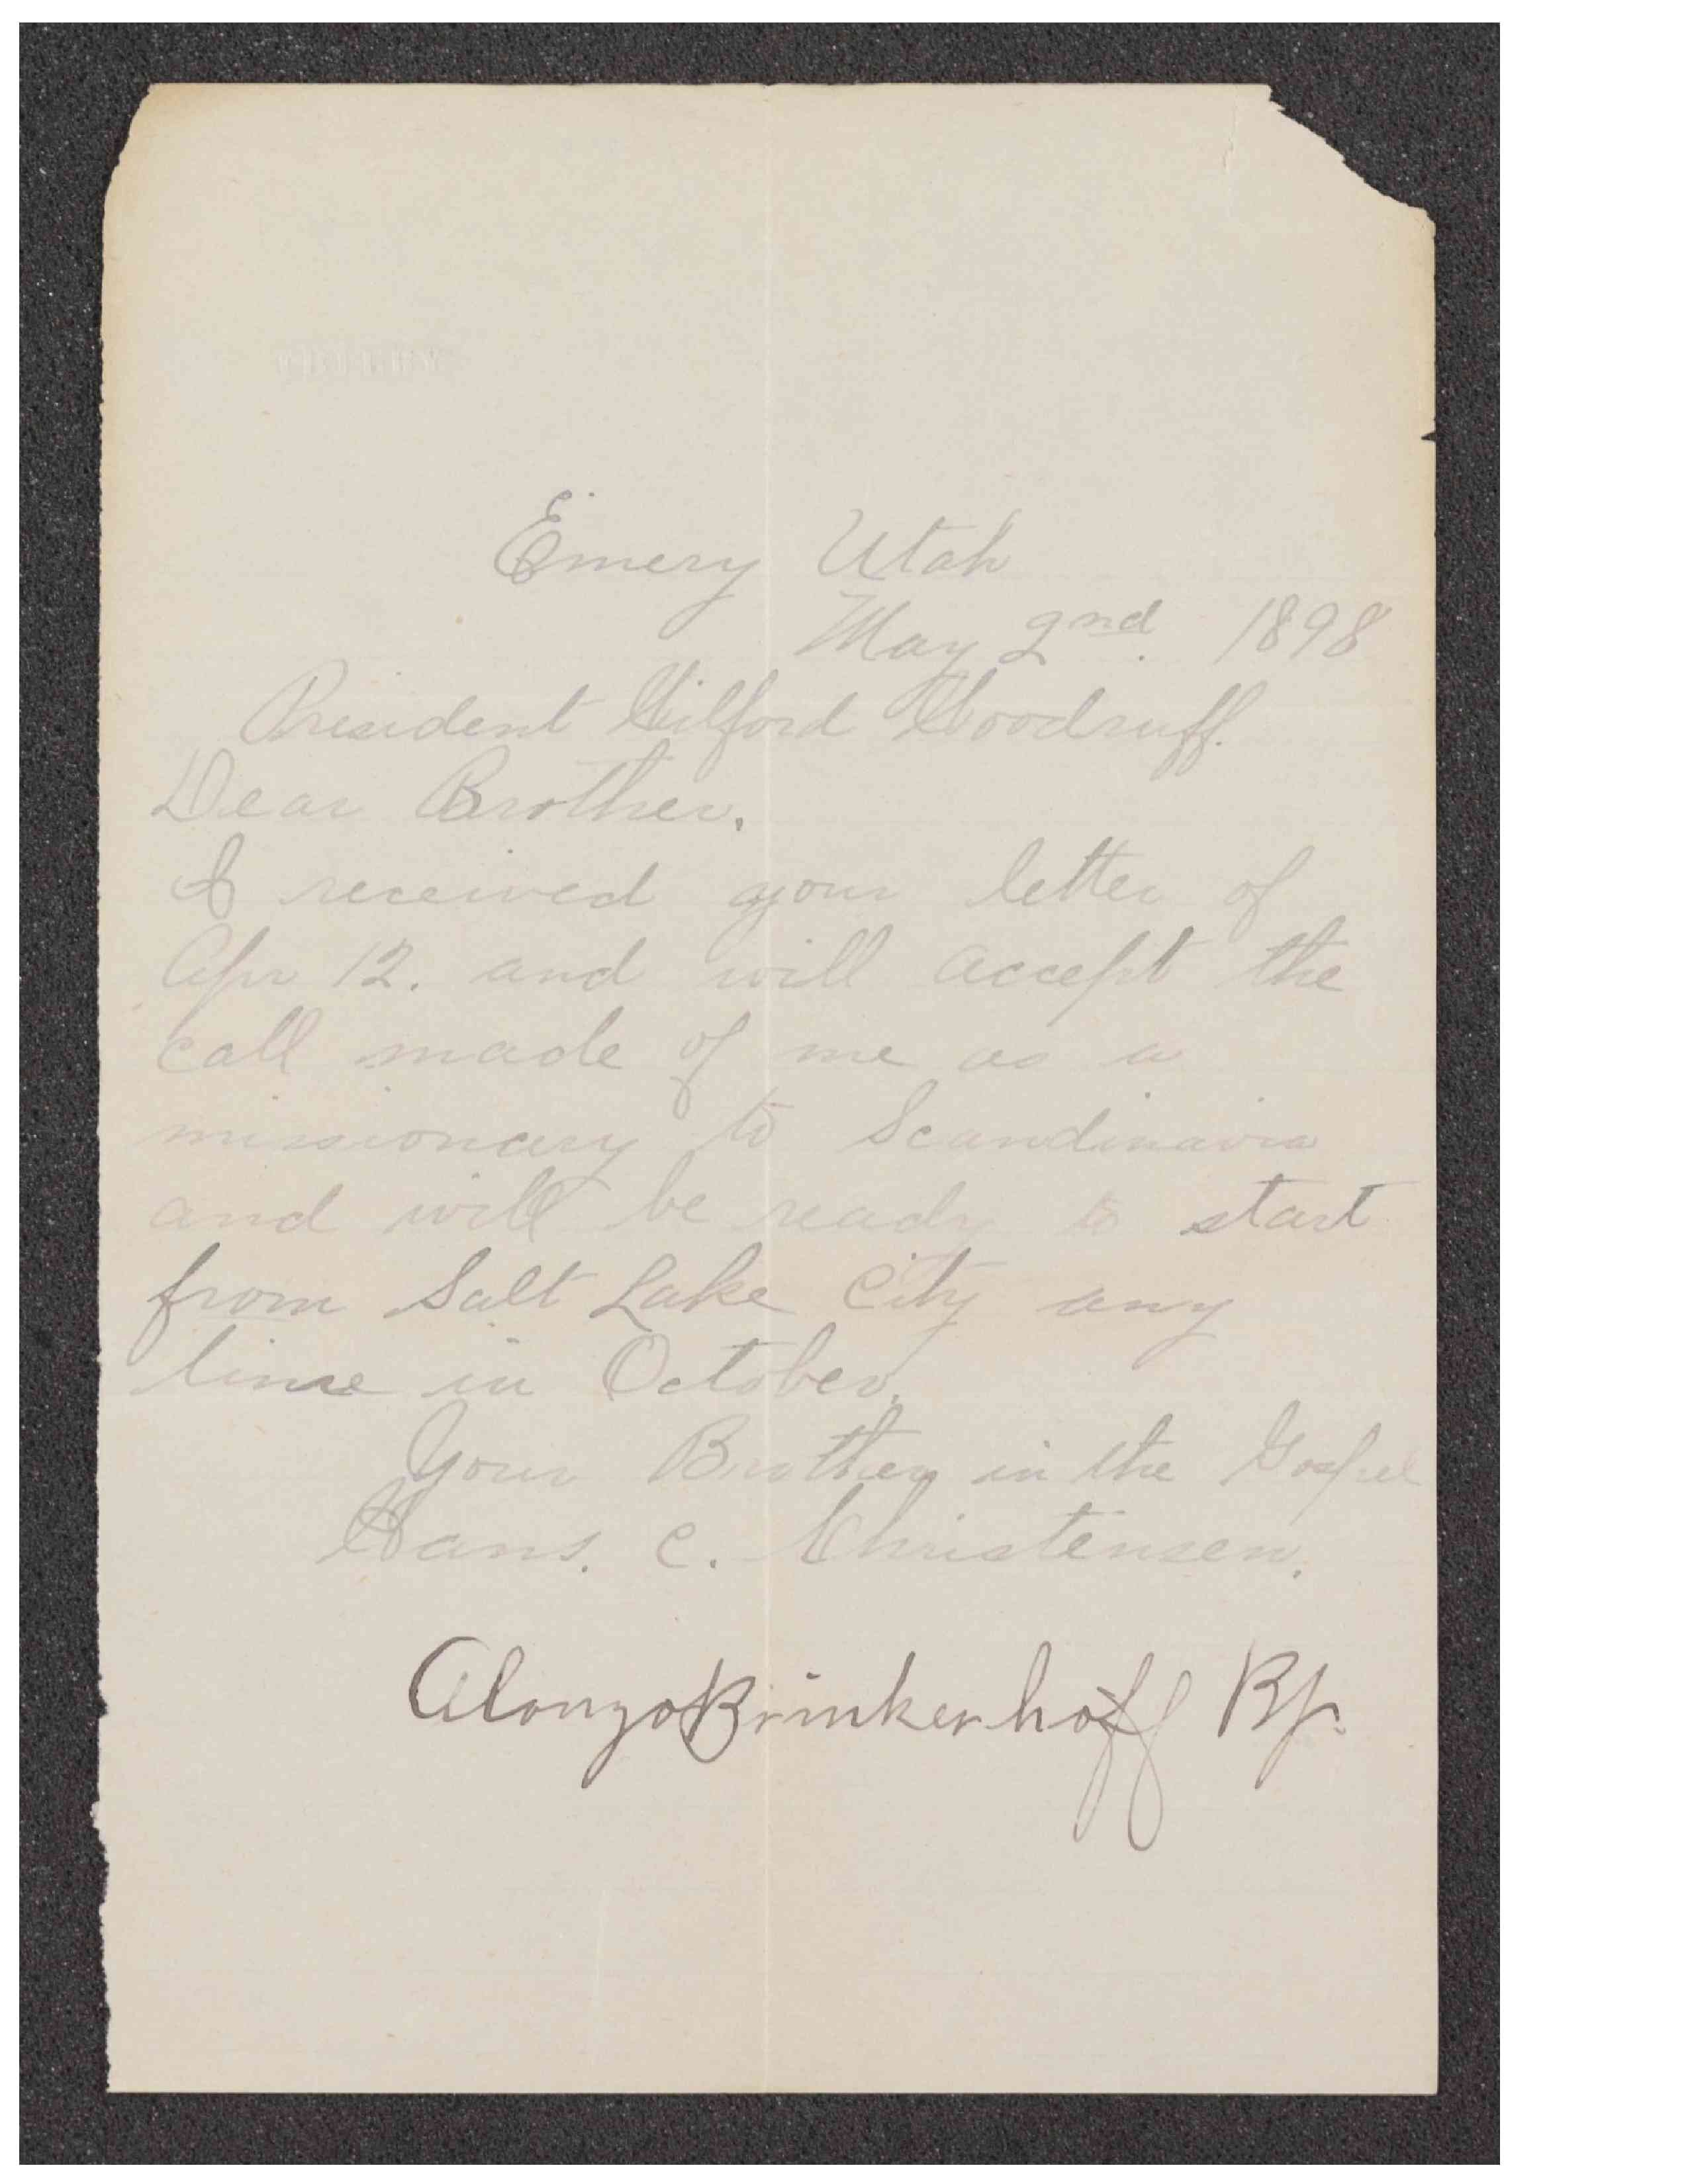 Emery Utah
May 2nd. 1898
President Wilford Woodruff.
Dear Brother.
I received your letter of
Apr 12. and will accept the
call made of me as a
missionary to Scandinavia
and will be ready to start
from Salt Lake City any
time in October.
Your Brother in the Gospel
Hans. C. Christensen.
Alonzo Brinkerhoff Bp.